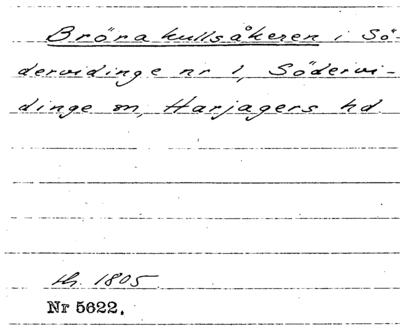 Bröna kullsåkeren i Sö-
dervidinge nr 1, Södervi-
dinge sn, Harjagers hd
th. 1805
Nr 5622.